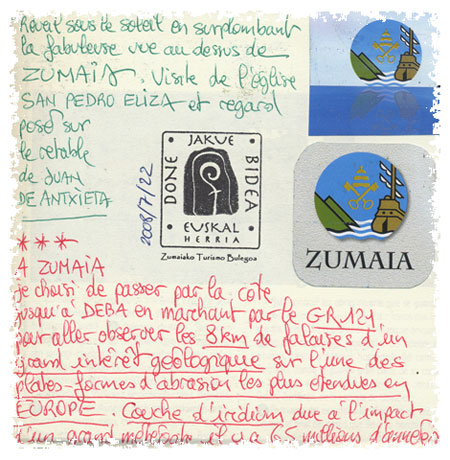 Réveil sous le soleil en surplombant
la fabuleuse vue au dessus de
ZUMAÏA. Visite de l'église
SAN PEDRO ELIZA et regard
posé sur
le retable
de JUAN
DE ANTXIETA
2008/7/22
JAKUE
DONE
BIDEA
EUSKAL
HERRIA
Zumaiako Turismo Bulegoa
ZUMAIA
***
A ZUMAÏA
je choisi de passer par la côte
jusqu'à DEBA en marchant par le GR121
pour aller observer les 8km de falaises d'un
grand intérêt géologique sur l'une des
plates-formes d'abrasion les plus étendues en
EUROPE. Couche d'iridium due à l'impact
d'un grand météorite il y a 65 millions d'années